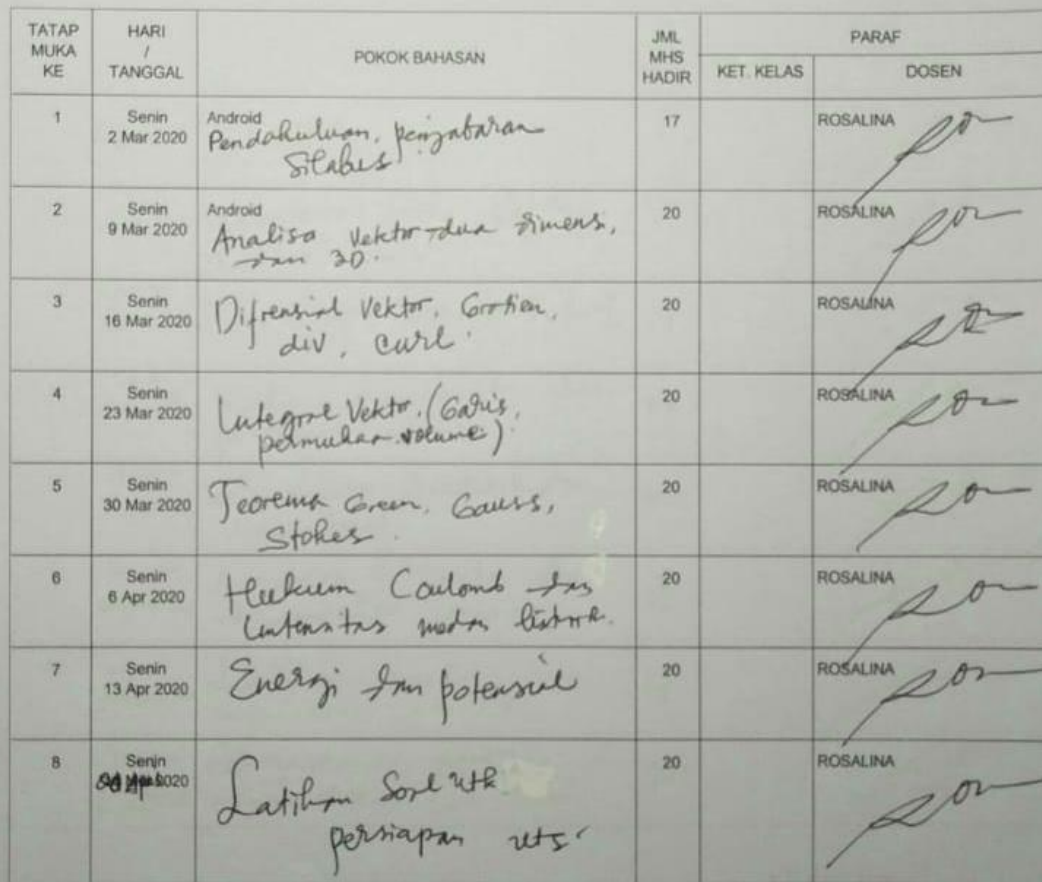 TATAP MUKA KE
HARI / TANGGAL
POKOK BAHASAN
JML MHS HADIR
PARAF
KET. KELAS
DOSEN
1
Senin
2 Mar 2020
Android
Pendahuluan, penjabaran
Silabus
17
ROSALINA
2
Senin
9 Mar 2020
Android
Analisa Vektor dua dimensi,
dan 3D.
20
ROSALINA
3
Senin
16 Mar 2020
Difrensial Vektor,
div, curl.
20
ROSALINA
4
Senin
23 Mar 2020
Integral Vektor, (Garis,
volume)
20
ROSALINA
5
Senin
30 Mar 2020
Teorema Green, Gauss,
Stokes.
20
ROSALINA
6
Senin
6 Apr 2020
Hukum Coulomb dan
Intensitas medan listrik.
20
ROSALINA
7
Senin
13 Apr 2020
Energi dan potensial
20
ROSALINA
8
Senin
2020
Latihan Soal utk
persiapan uts.
20
ROSALINA